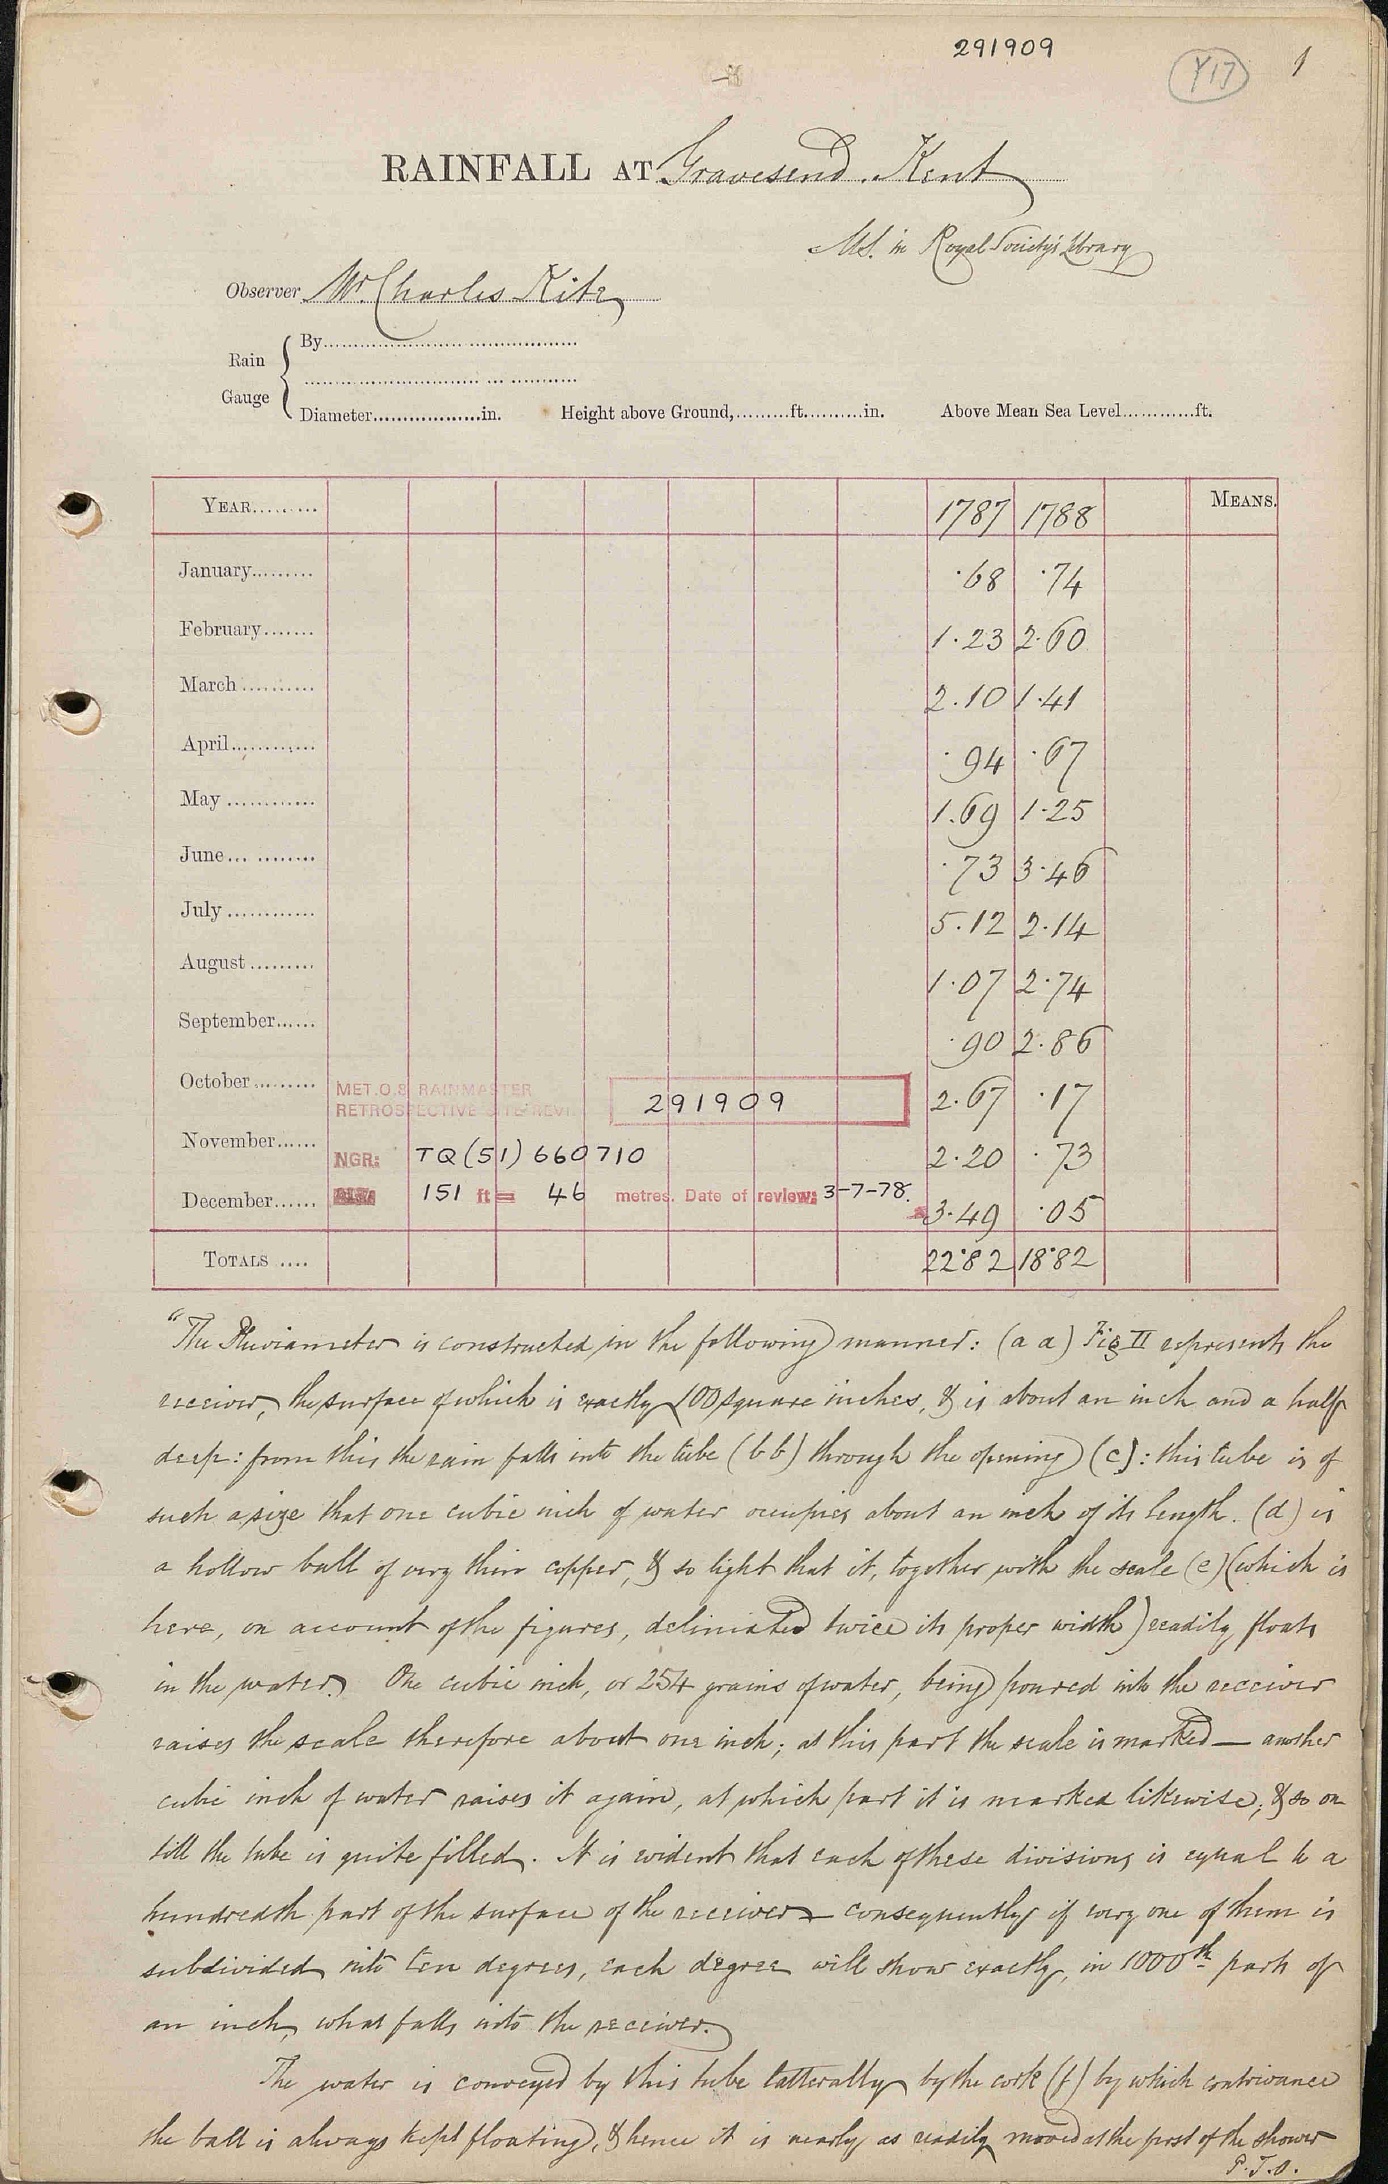 291909
Y17
1
RAINFALL AT Gravesend. Kent
MS. in Royal Society's Library
Observer Mr. Charles Kite
Rain Gauge
By
Diameter in. Height above Ground, ft. in. Above Mean Sea Level ft.
YEAR 1787 1788 MEANS.
January .68 .74
February 1.23 2.60
March 2.10 1.41
April .94 .67
May 1.69 1.25
June .73 3.46
July 5.12 2.14
August 1.07 2.74
September .90 2.86
October 2.67 .17
MET.O.8 RAINMASTER
RETROSPECTIVE SITE REVI 291909
November 2.20 .73
NGR: TQ (51) 660710
December 3.49 .05
151 ft = 46 metres. Date of review: 3-7-78.
TOTALS 22.82 18.82
"The Pluviameter is constructed in the following manner: (a a) Fig II represents the
receiver, the surface of which is exactly 100 square inches, & is about an inch and a half
deep: from this the rain falls into the tube (b b) through the opening (c): this tube is of
such a size that one cubic inch of water occupies about an inch of its length. (d) is
a hollow ball of very thin copper, & so light that it, together with the scale (e) (which is
here, on account of the figures, deliniated twice its proper width) readily floats
in the water. One cubic inch, or 254 grains of water, being poured into the receiver
raises the scale therefore about one inch; at this part the scale is marked — another
cubic inch of water raises it again, at which part it is marked likewise; & so on
till the tube is quite filled. It is evident that each of these divisions is equal to a
hundredth part of the surface of the receiver — consequently if every one of them is
subdivided into ten degrees, each degree will show exactly, in 1000th parts of
an inch, what falls into the receiver.
The water is conveyed by this tube latterally by the cork (f) by which contrivance
the ball is always kept floating, & hence it is nearly as readily moved at the first of the shower
P.T.O.